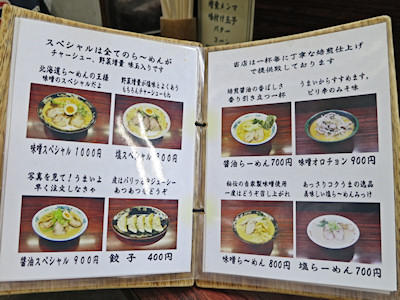 増量メンマ
味付け玉子
バター
コーン
スペシャルは全てのら〜めんが
チャーシュー、野菜増量 味玉入りです
北海道ら〜めんの王様
味噌のスペシャルだよ
味噌スペシャル 1000円
野菜増量が塩味とよくあう
もちろんチャーシューもね
塩スペシャル 900円
写真を見て!うまいよ
早く注文しなきゃ
醤油スペシャル 900円
皮はパリッ中ジューシー
あつもあつもどうぞ
餃子 400円
当店は一杯毎に丁寧な焙煎仕上げ
で提供致しております
焙煎醤油の香ばしさ
香り引き立つ一杯
醤油ら〜めん 700円
うまいからすすめます。
ピリ辛のみそ味
味噌オロチョン 900円
秘伝の自家製味噌使用
一度はどうぞ召し上がれ
味噌ら〜めん 800円
あっさりコクうまの逸品
美味しい塩ら〜めんみっけ
塩らーめん 700円